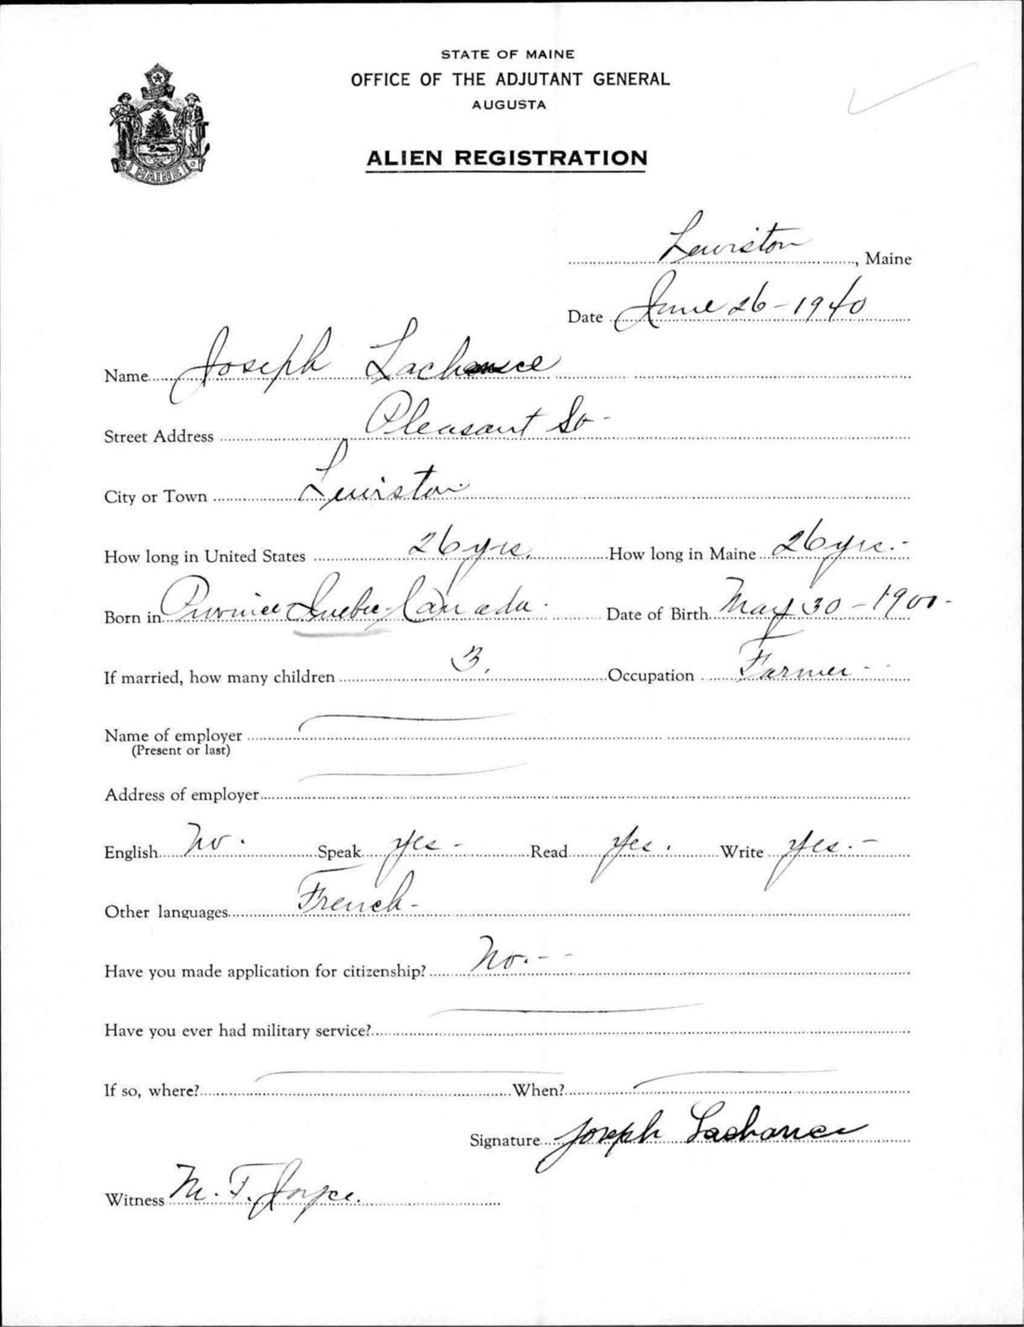 STATE OF MAINE
OFFICE OF THE ADJUTANT GENERAL
AUGUSTA
MAINE
ALIEN REGISTRATION
Lewiston, Maine
Date June 26-1940
Name Joseph Lachance
Street Address Pleasant St-
City or Town Lewiston.
How long in United States 26 yrs. How long in Maine 26 yrs.-
Born in Province Quebec-Canada. Date of Birth May 30-1900-
If married, how many children 3. Occupation Farmer-
Name of employer
(Present or last)
Address of employer
English No. Speak yes- Read Yes. Write yes.-
Other languages French-
Have you made application for citizenship? No.--
Have you ever had military service?
If so, where? When?
Signature Joseph Lachance
Witness M. F. Joyce.